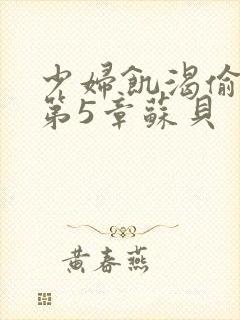 少婦飢渴偷
第5章蘇貝
黃春燕